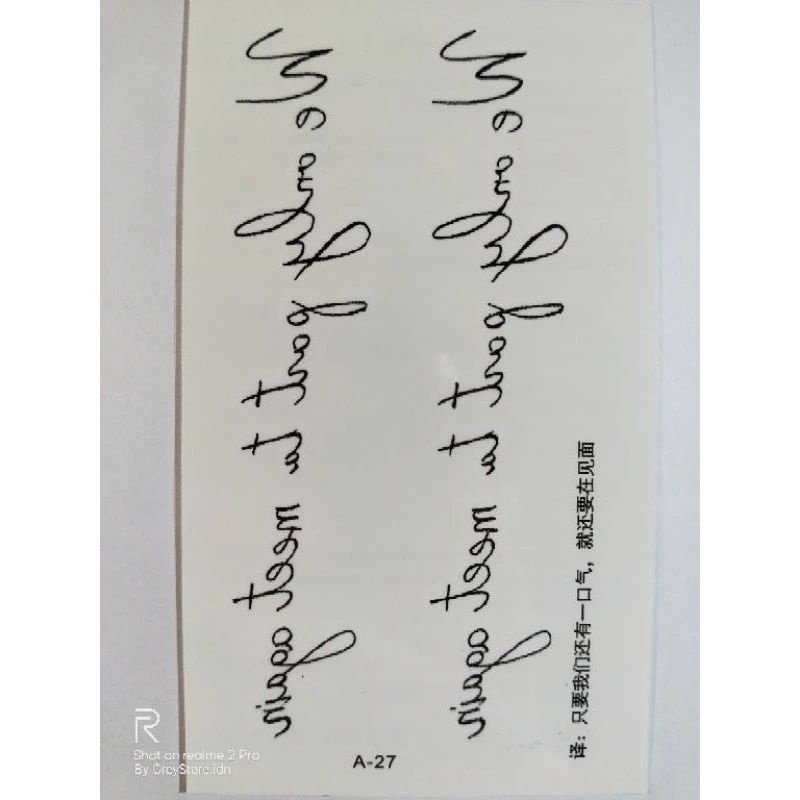 We only part to meet again
We only part to meet again
译：只要我们还有一口气，就还要在见面
A-27
R
Shot on realme 2 Pro
By